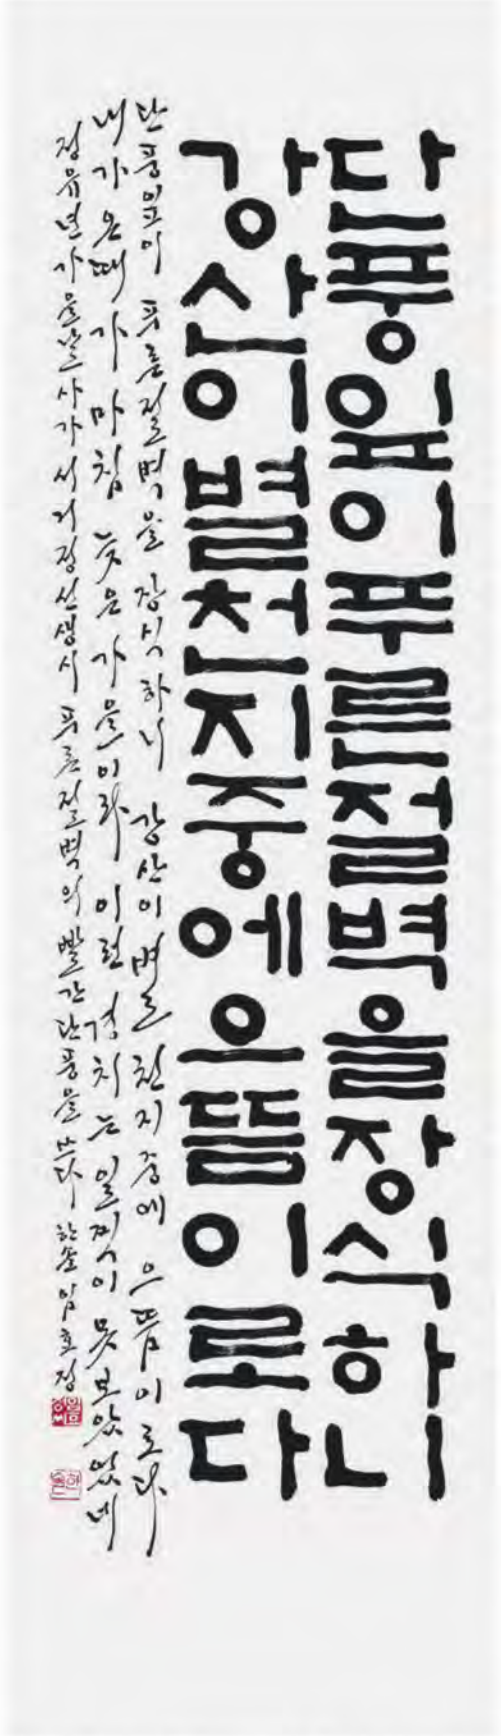 단풍잎이푸른절벽을장식하니
강산이별천지중에으뜸이로다
단풍잎이 푸른절벽을 장식하니 강산이 별천지중에 으뜸이로다
내가 온때가 마침 늦은 가을이라 이런 경치는 일찍이 못보았었네
정유년 가을날 사가 서거정선생시 푸른절벽의 빨간단풍을 쓰다 한솔 임호정